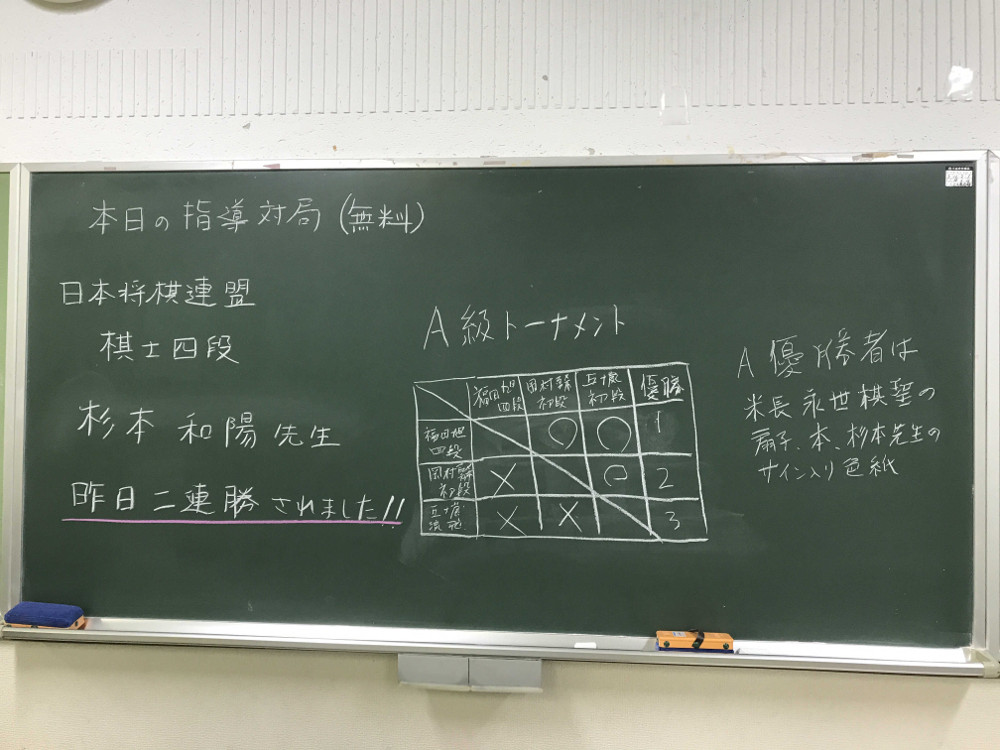 本日の指導対局(無料)
日本将棋連盟
棋士四段
杉本 和陽 先生
昨日二連勝されました!!
A級トーナメント
福田旭 四段 岡村 初段 初段 優勝
福田旭 四段 ○ ○ 1
岡村 初段 × ○ 2
× × 3
A優勝者は
米長永世棋聖の
扇子、本、杉本先生の
サイン入り色紙